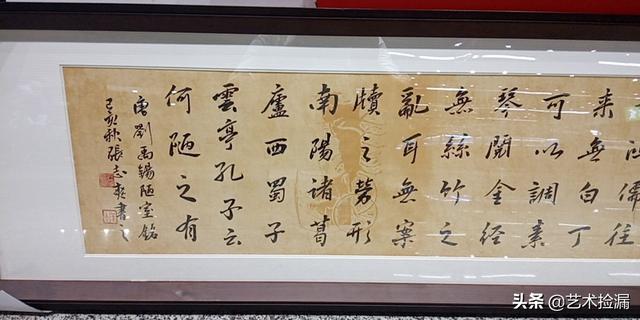 儒往
来無白丁
可以調素
琴閱金經
無絲竹之
亂耳無案
牘之勞形
南陽諸葛
廬西蜀子
雲亭孔子云
何陋之有
唐劉禹錫陋室銘
己亥秋張志書之
头条 @艺术捡漏